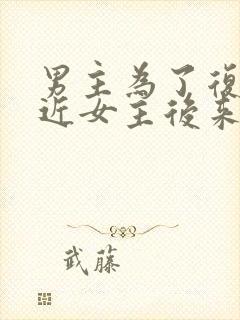 男主為了復
近女主後來
武藤